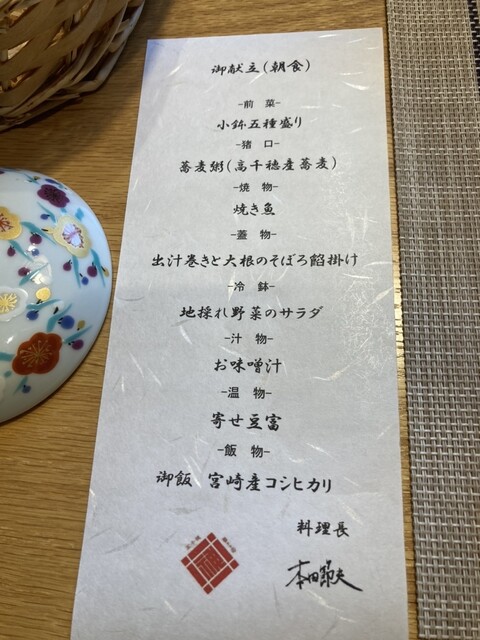 御献立(朝食)
-前 菜-
小鉢五種盛り
-猪 口-
蕎麦粥(高千穂産蕎麦)
-焼 物-
焼き魚
-蓋 物-
出汁巻きと大根のそぼろ餡掛け
-冷 鉢-
地採れ野菜のサラダ
-汁 物-
お味噌汁
-温 物-
寄せ豆富
-飯 物-
御飯 宮崎産コシヒカリ
料理長
本田節夫